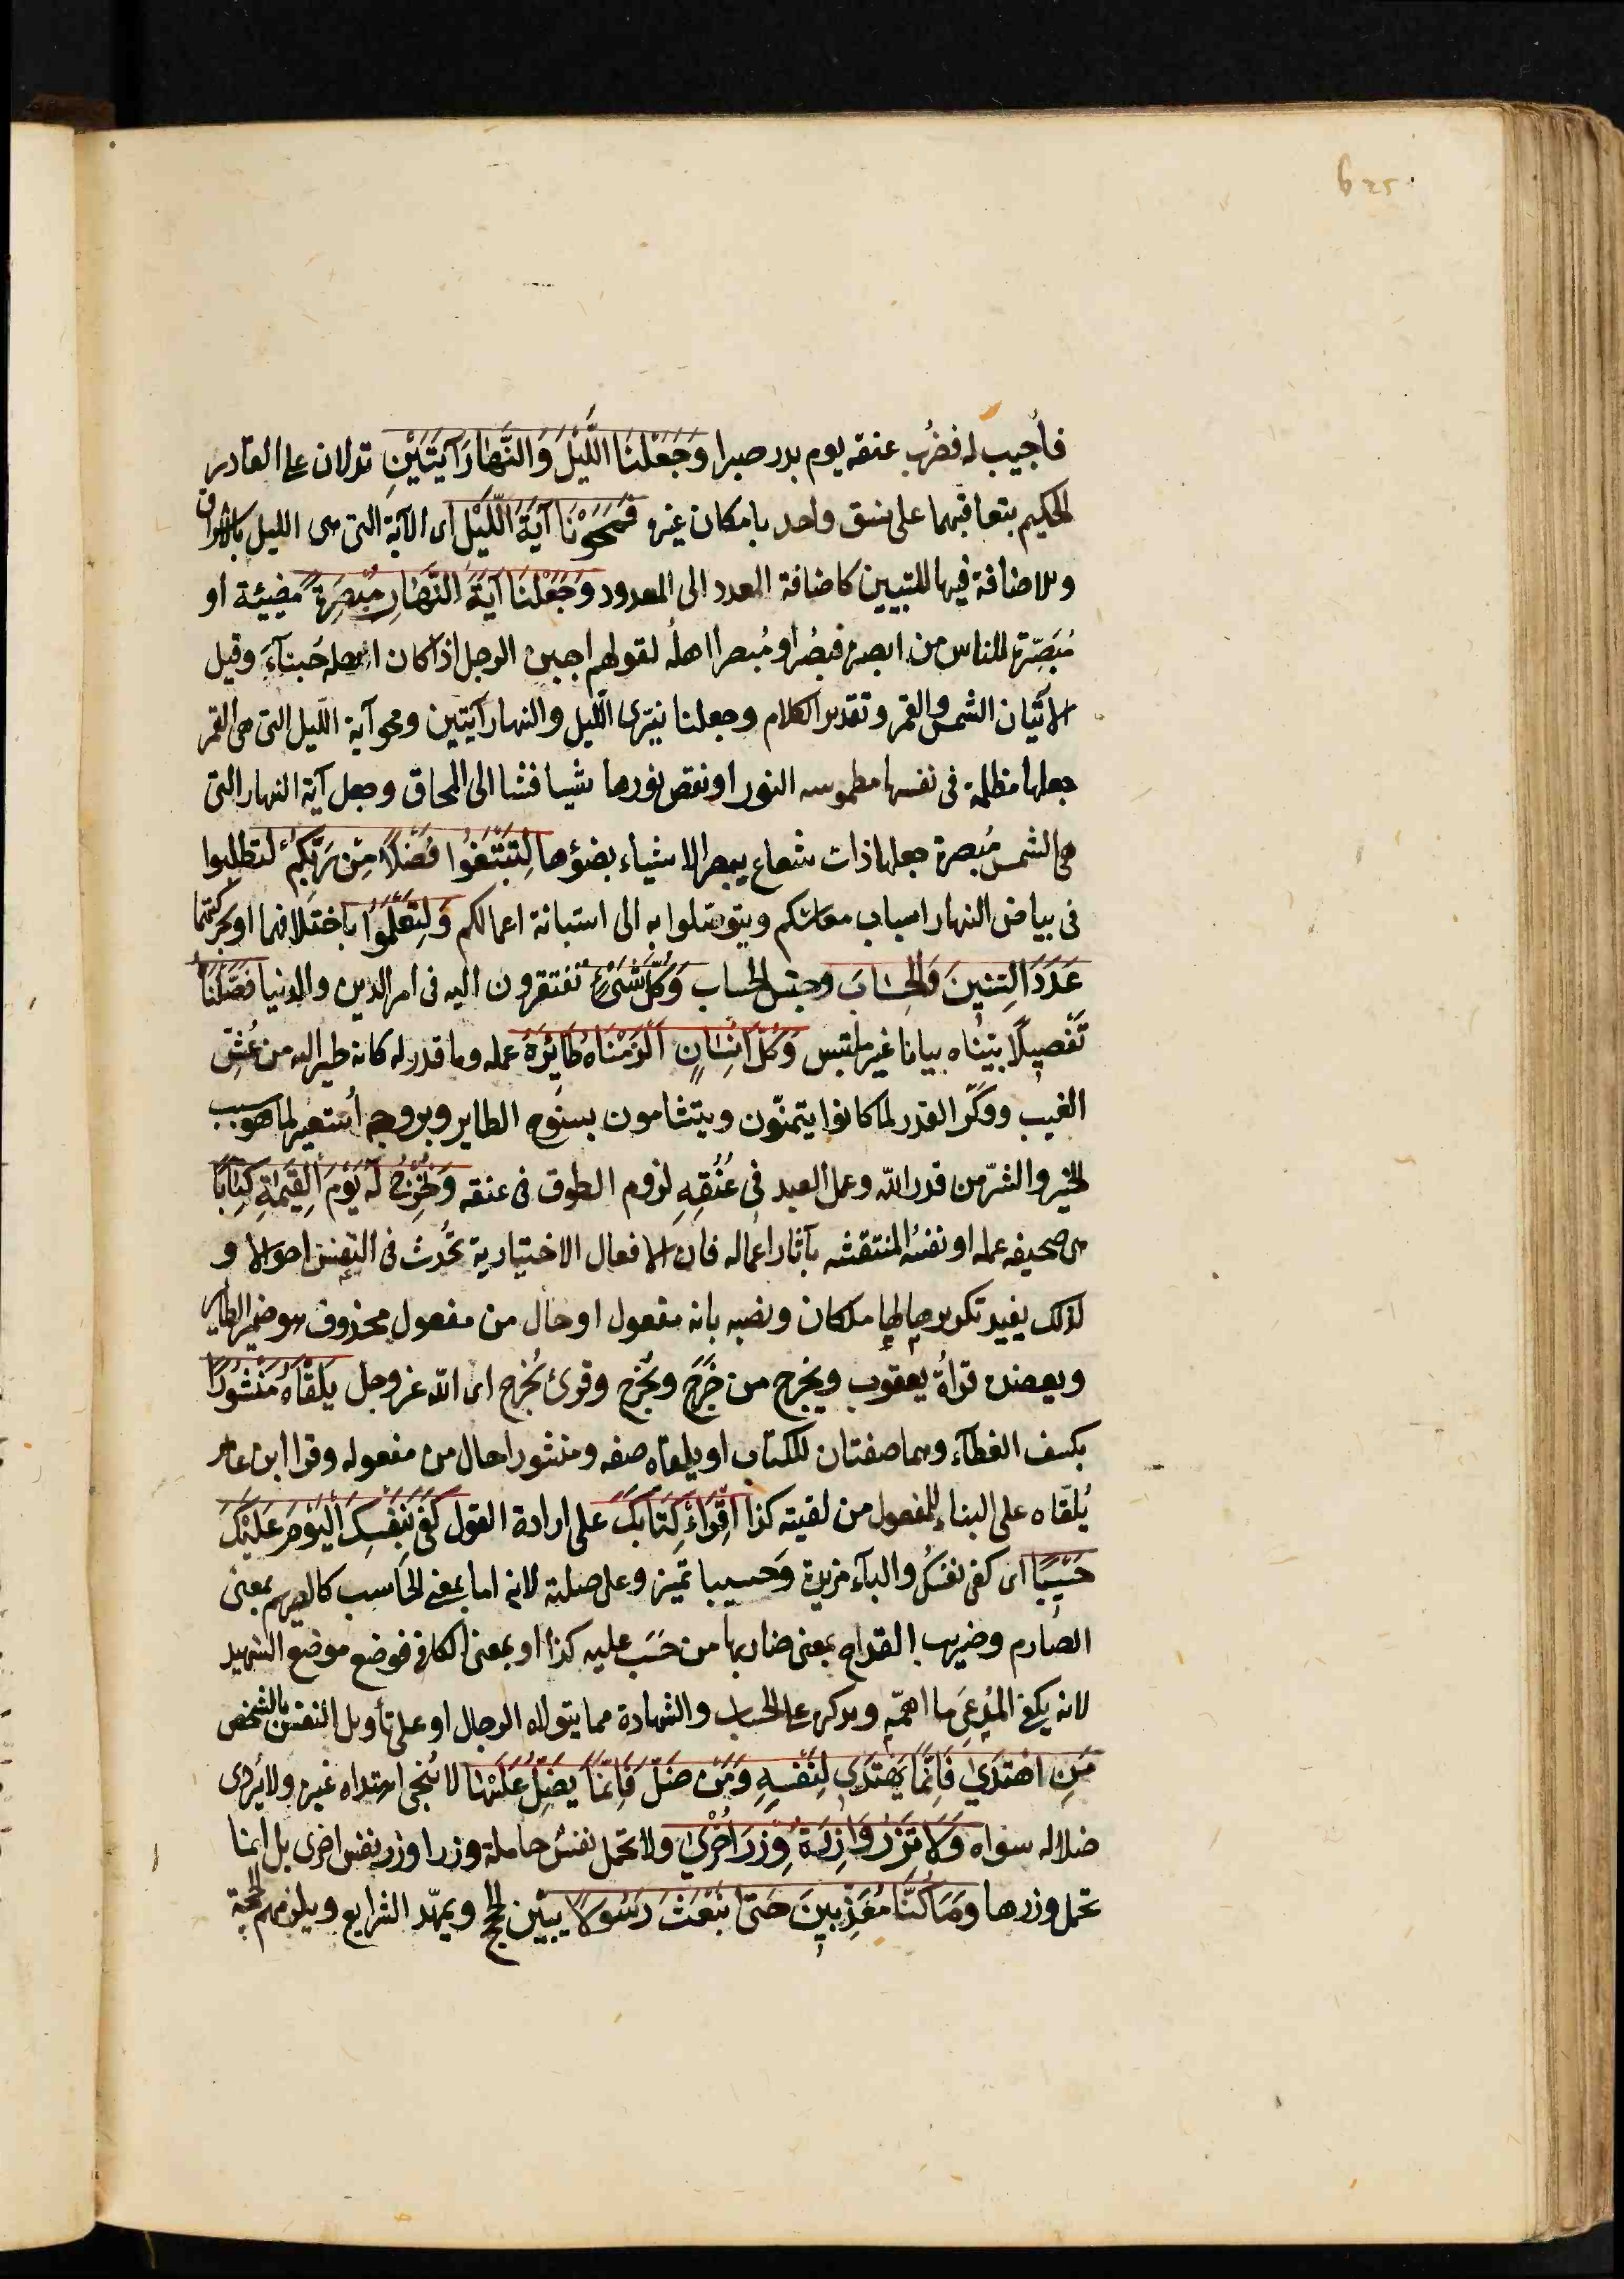 625
فأجيب له فضُرِب عنقه يوم بدر صبرا وَجَعَلْنَا اللَّيْلَ وَالنَّهَارَ آيَتَيْنِ تدلان على القادر
الحكيم بتعاقبهما على نسق واحد بامكان غيره فَمَحَوْنَا آيَةَ اللَّيْلِ اى الآية التى هى الليل بالاشراق
والاضافة فيها للتبيين كاضافة العدد الى المعدود وَجَعَلْنَا آيَةَ النَّهَارِ مُبْصِرَةً مضيئة او
مُبَصِّرَة للناس من ابصره فبصُر او مُبصرا اهلُه لقولهم اجبن الرجل اذا كان اهله جُبناءَ وقيل
الآيتان الشمس والقمر وتقدير الكلام وجعلنا نيّرى الليل والنهار آيتين ومحو آية اللّيل التى هى القمر
جعلها مظلمة فى نفسها مطموسه النور او نقص نورها شيا فشيا الى المحاق وجعل آية النهار التى
هى الشمس مُبصرة جعلها ذات شعاع يبصر الاشياء بضوءها لِتَبْتَغُوا فَضْلًا مِنْ رَبِّكُمْ لتطلبوا
فى بياض النهار اسباب معاشكم ويتوصّلوا به الى استبانة اعمالكم وَلِتَعْلَمُوا باختلافهما او بحركتهما
عَدَدَ السِّنِينَ وَالْحِسَابَ وجنس الحساب وَكُلَّ شَيْءٍ تفتقرون اليه فى امر الدين والدنيا فَصَّلْنَاهُ
تَفْصِيلًا بيّنّاه بيانا غير ملتبس وَكُلَّ انْسَانٍ اَلْزَمْنَاهُ طَائِرَهُ عمله وما قدر له كانه طير اليه من عُشِّ
الغيب ووكر القدر لما كانوا يتمنّون ويتشامون بسنوح الطاير وبروحه اُستعير لما هو سبب
الخير والشرّ من قدر اللّه وعمل العبد فِى عُنُقِهِ لزوم الطوق فى عنقه وَنُخْرِجُ لَهُ يَوْمَ الْقِيمَةِ كِتَابًا
هى صحيفه عمله او نفسُه المنتقشه بآثار اعماله فان الافعال الاختيارية تُحدث فى النفس احوالا و
لذلك يفيد تكريرها لها ملكان ونصبه بانه مفعول او حال من مفعول محذوف هو ضمير الطاير
ويعضده قرأة يعقوب ويَخرج من خَرَجَ ويُخرَج وقرئ يُخرج اى اللّه عز وجل يَلْقَاهُ مَنْشُورًا
بكسف الغطآء وهما صفتان للكتاب او يلقاه صفه ومنشورا حال من مفعوله وقرا ابن عامر
يُلقّاه على البناء للمفعول من لقيته كذا اِقْرَأْ كِتَابَكَ على ارادة القول كَفَى بِنَفْسِكَ الْيَوْمَ عَلَيْكَ
حَسِيبًا اى كفى نفسُك والبآء مزيدة وَحسيبا تميز وعلى صلته لانه اما بمعنى الحَاسب كالصريم بمعنى
الصارم وضريب القداح بمعنى ضاربها من حَسَب عليه كذا او بمعنى الكافى فوضع موضع الشهيد
لانه يكفى المُدعىَ ما اهمّه وتذكيره على الحساب والشهادة مما يتولاه الرجال او على تأويل النفس بالشخص
مَنِ اهْتَدَى فَاِنَّمَا يَهْتَدِى لِنَفْسِهِ وَمَنْ ضَلَّ فَاِنَّمَا يَضِلُّ عَلَيْهَا لا يُنجى اهتداه غيره ولا يُردى
ضلاله سواه وَلَا تَزِرُ وَازِرَةٌ وِزْرَ اُخْرَى ولا تحمل نفسٌ حاملة وزرا وزر نفس اخرى بل انما
تحمل وزرها وَمَا كُنَّا مُعَذِّبِينَ حَتَّى نَبْعَثَ رَسُولًا يبيّن الحجج ويمهّد الشرايع ويلزمهم الحجة